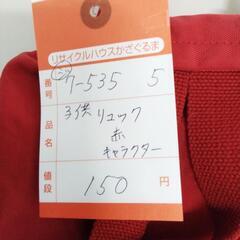 リサイクルハウスかざぐるま
番号 ㋒7-535 5
品名 子供 リュック
赤
キャラクター
値段 150 円